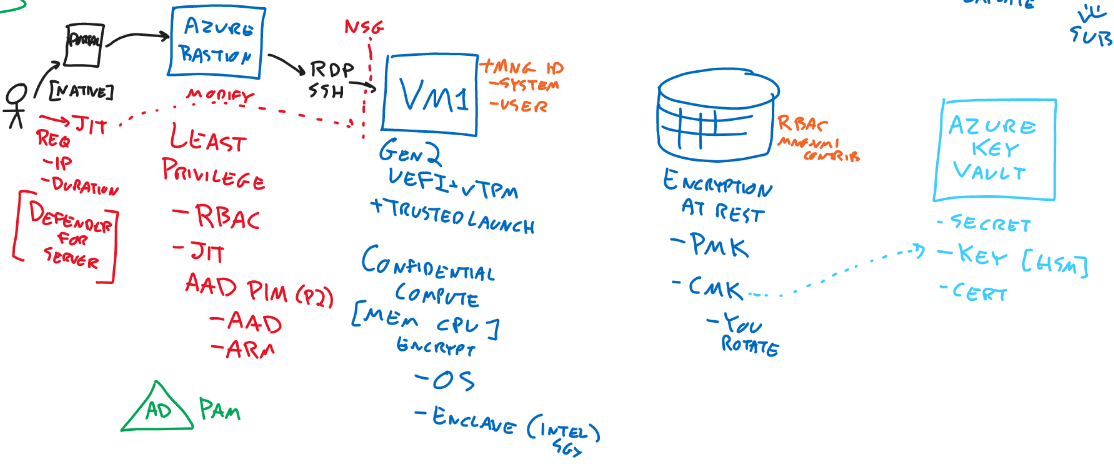 SUB
PORTAL
[NATIVE]
AZURE
BASTION
RDP
SSH
NSG
VM1
+MNG ID
-SYSTEM
-USER
MODIFY
JIT
REQ
-IP
-DURATION
[DEFENDER
FOR
SERVER]
LEAST
PRIVILEGE
-RBAC
-JIT
AAD PIM (P2)
-AAD
-ARM
AD PAM
GEN2
UEFI+vTPM
+TRUSTED LAUNCH
CONFIDENTIAL
COMPUTE
[MEM CPU]
ENCRYPT
-OS
-ENCLAVE (INTEL)
SGX
RBAC
CONTRIB
ENCRYPTION
AT REST
-PMK
-CMK
-YOU
ROTATE
AZURE
KEY
VAULT
-SECRET
-KEY [HSM]
-CERT